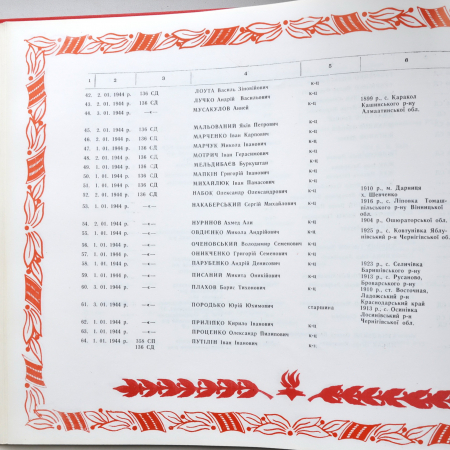 1 2 3 4 5 6
42. 2. 01. 1944 р. 136 СД ЛОУТА Василь Зіновійович к-ц
43. 2. 01. 1944 р. 136 СД ЛУЧКО Андрій Васильович к-ц 1899 р., с. Каракол
44. 3. 01. 1944 р. —»— МУСАКУЛОВ к-ц Кашинського р-ну
Алматинської обл.
45. 2. 01. 1944 р. 136 СД МАЛЬОВАНИЙ Яків Петрович к-ц
46. 2. 01. 1944 р. 136 СД МАРЧЕНКО Іван Карпович к-ц
47. 1. 01. 1944 р. 136 СД МАРЧУК Микола Іванович к-ц
48. 2. 01. 1944 р. 136 СД МОТРИЧ Іван Герасимович к-ц
49. 1. 01. 1944 р. 136 СД МЕЛЬДИБАЄВ Буркуштан к-ц
50. 1. 01. 1944 р. 136 СД МАПКІН Григорій Іванович к-ц
51. 1. 01. 1944 р. 136 СД МИХАЙЛЮК Іван Панасович к-ц
52. 2. 01. 1944 р. 136 СД НАБОК Олександр Олександрович к-ц 1910 р., м. Дарниця
х. Шевченка
53. 1. 01. 1944 р. —»— НАКАБЕРСЬКИЙ Сергій Михайлович к-ц 1916 р., с. Ліповка Томаш-
пільського р-ну Вінницької
обл.
54. 2. 01. 1944 р. —»— НУРИНОВ Ахмед Али к-ц 1904 р., обл.
55. 1. 01. 1944 р. —»— ОВДІЄНКО Микола Андрійович к-ц 1925 р., с. Ковтунівка Яблу-
нівський р-н Чернігівської обл.
56. 1. 01. 1944 р. —»— ОЧЕНОВСЬКИЙ Володимир Семенович к-ц
57. 1. 01. 1944 р. —»— ОНИКЧЕНКО Григорій Семенович к-ц
58. 1. 01. 1944 р. —»— ПАРУБЕНКО Андрій Денисович к-ц 1923 р., с. Селичівка
Баришівського р-ну
59. 1. 01. 1944 р. —»— ПИСАНИЙ Микита к-ц 1913 р., с. Русаново,
Броварського р-ну
60. 3. 01. 1944 р. —»— ПЛАХОВ Борис Тихонович к-ц 1910 р., ст. Восточная,
Ладожський р-н
Краснодарський край
61. 3. 01. 1944 р. —»— ПОРОДЬКО Юрій Юхимович старшина 1915 р., с. Осинівка
Лосинівський р-н
Чернігівської обл.
62. 1. 01. 1944 р. —»— ПРИЛІПКО Кирило Іванович к-ц
63. 1. 01. 1944 р. —»— ПРОЦЕНКО Олександр Пилипович к-ц
64. 1. 01. 1944 р. 358 СП ПУТІЛІН Іван Іванович к-ц
136 СД